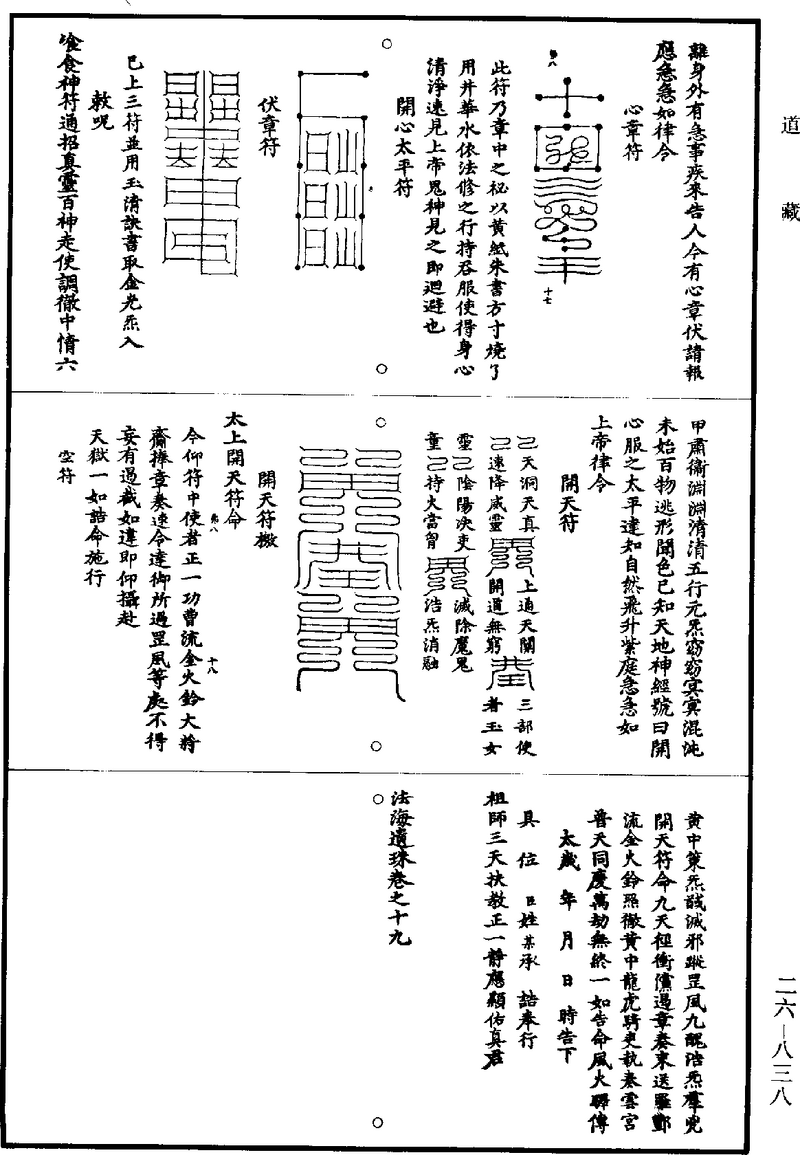 道藏
離身外有急事疾來告人今有心章伏請報
應急急如律令
心章符
弗八
十七
此符乃章中之祕以黃紙朱書方寸燒了
用井華水依法修之行持吞服使得身心
清淨速見上帝鬼神見之即迴避也
開心太平符
伏章符
已上三符並用玉清訣書取金光炁入
敕呪
飡食神符通招真靈百神走使調徹中情六
甲肅衛淵淵清清五行元炁窈窈冥冥混沌
未始百物逃形聞色已知天地神經號曰開
心服之太平達知自然飛升紫庭急急如
上帝律令
開天符
天洞天真 上通天關 三部使
速降威靈 開道無窮 者玉女
靈 陰陽決吏 滅除魔鬼
童 持火當胷 浩炁消融
開天符檄
太上開天符命
弗八
十八
令仰符中使者正一功曹流金火鈴大將
齎捧章奏速令達御所過罡風等處不得
妄有過截如違即仰攝赴
天獄一如誥命施行
空符
黃中策炁馘滅邪蹤罡風九醜浩炁羣兇
開天符命九天徑衝儻過章奏束送羅酆
流金火鈴照徹黃中龍虎騎吏執奏雲宮
普天同慶萬劫無終一如告命風火驛傳
太歲 年 月 日 時告下
具 位 臣姓某承 誥奉行
祖師三天扶教正一靜應顯佑真君
法海遺珠卷之十九
二六—八三八